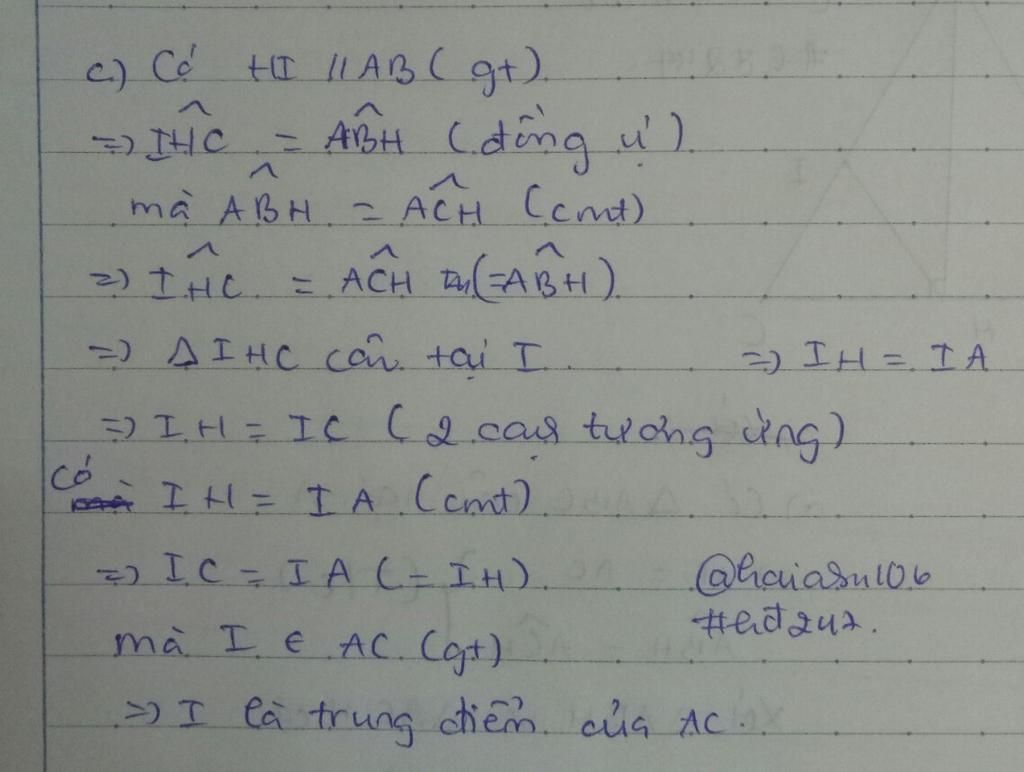 c) Có HI // AB (gt)
=> IHC^ = ABH^ (đồng vị)
mà ABH^ = ACH^ (cmt)
=> IHC^ = ACH^ (=ABH^)
=> Δ IHC cân tại I. => IH = IA
=> IH = IC (2 cạnh tương ứng)
Có IH = IA (cmt)
=> IC = IA (= IH).
mà I ∈ AC (gt)
=> I là trung điểm của AC.